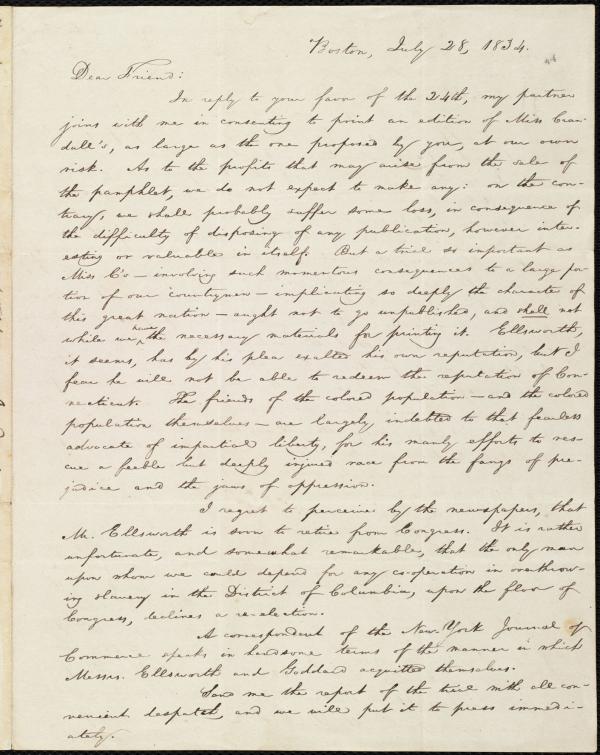 Boston, July 28, 1834.
Dear Friend:
In reply to your favor of the 24th, my partner
joins with me in consenting to print an edition of Miss Cran-
dall's, as large as the one proposed by you, at our own
risk. As to the profits that may arise from the sale of
the pamphlet, we do not expect to make any: on the con-
trary, we shall probably suffer some loss, in consequence of
the difficulty of disposing of any publication, however inter-
esting or valuable in itself. But a trial so important as
Miss C's — involving such momentous consequences to a large por-
tion of our countrymen — implicating so deeply the character of
this great nation — ought not to go unpublished, and shall not
while we have the necessary materials for printing it. Ellsworth,
it seems, has by his plea exalted his own reputation, but I
fear he will not be able to redeem the reputation of Con-
necticut. The friends of the colored population — and the colored
population themselves — are largely indebted to that fearless
advocate of impartial liberty, for his manly efforts to res-
cue a feeble but deeply injured race from the fangs of pre-
judice and the jaws of oppression.
I regret to perceive by the newspapers, that
Mr. Ellsworth is soon to retire from Congress. It is rather
unfortunate, and somewhat remarkable, that the only man
upon whom we could depend for any co-operation in overthrow-
ing slavery in the District of Columbia, upon the floor of
Congress, declines a re-election.
A correspondent of the New-York Journal of
Commerce speaks in handsome terms of the manner in which
Messrs. Ellsworth and Goddard acquitted themselves.
Send me the report of the trial with all con-
venient despatch, and we will put it to press immedi-
ately.